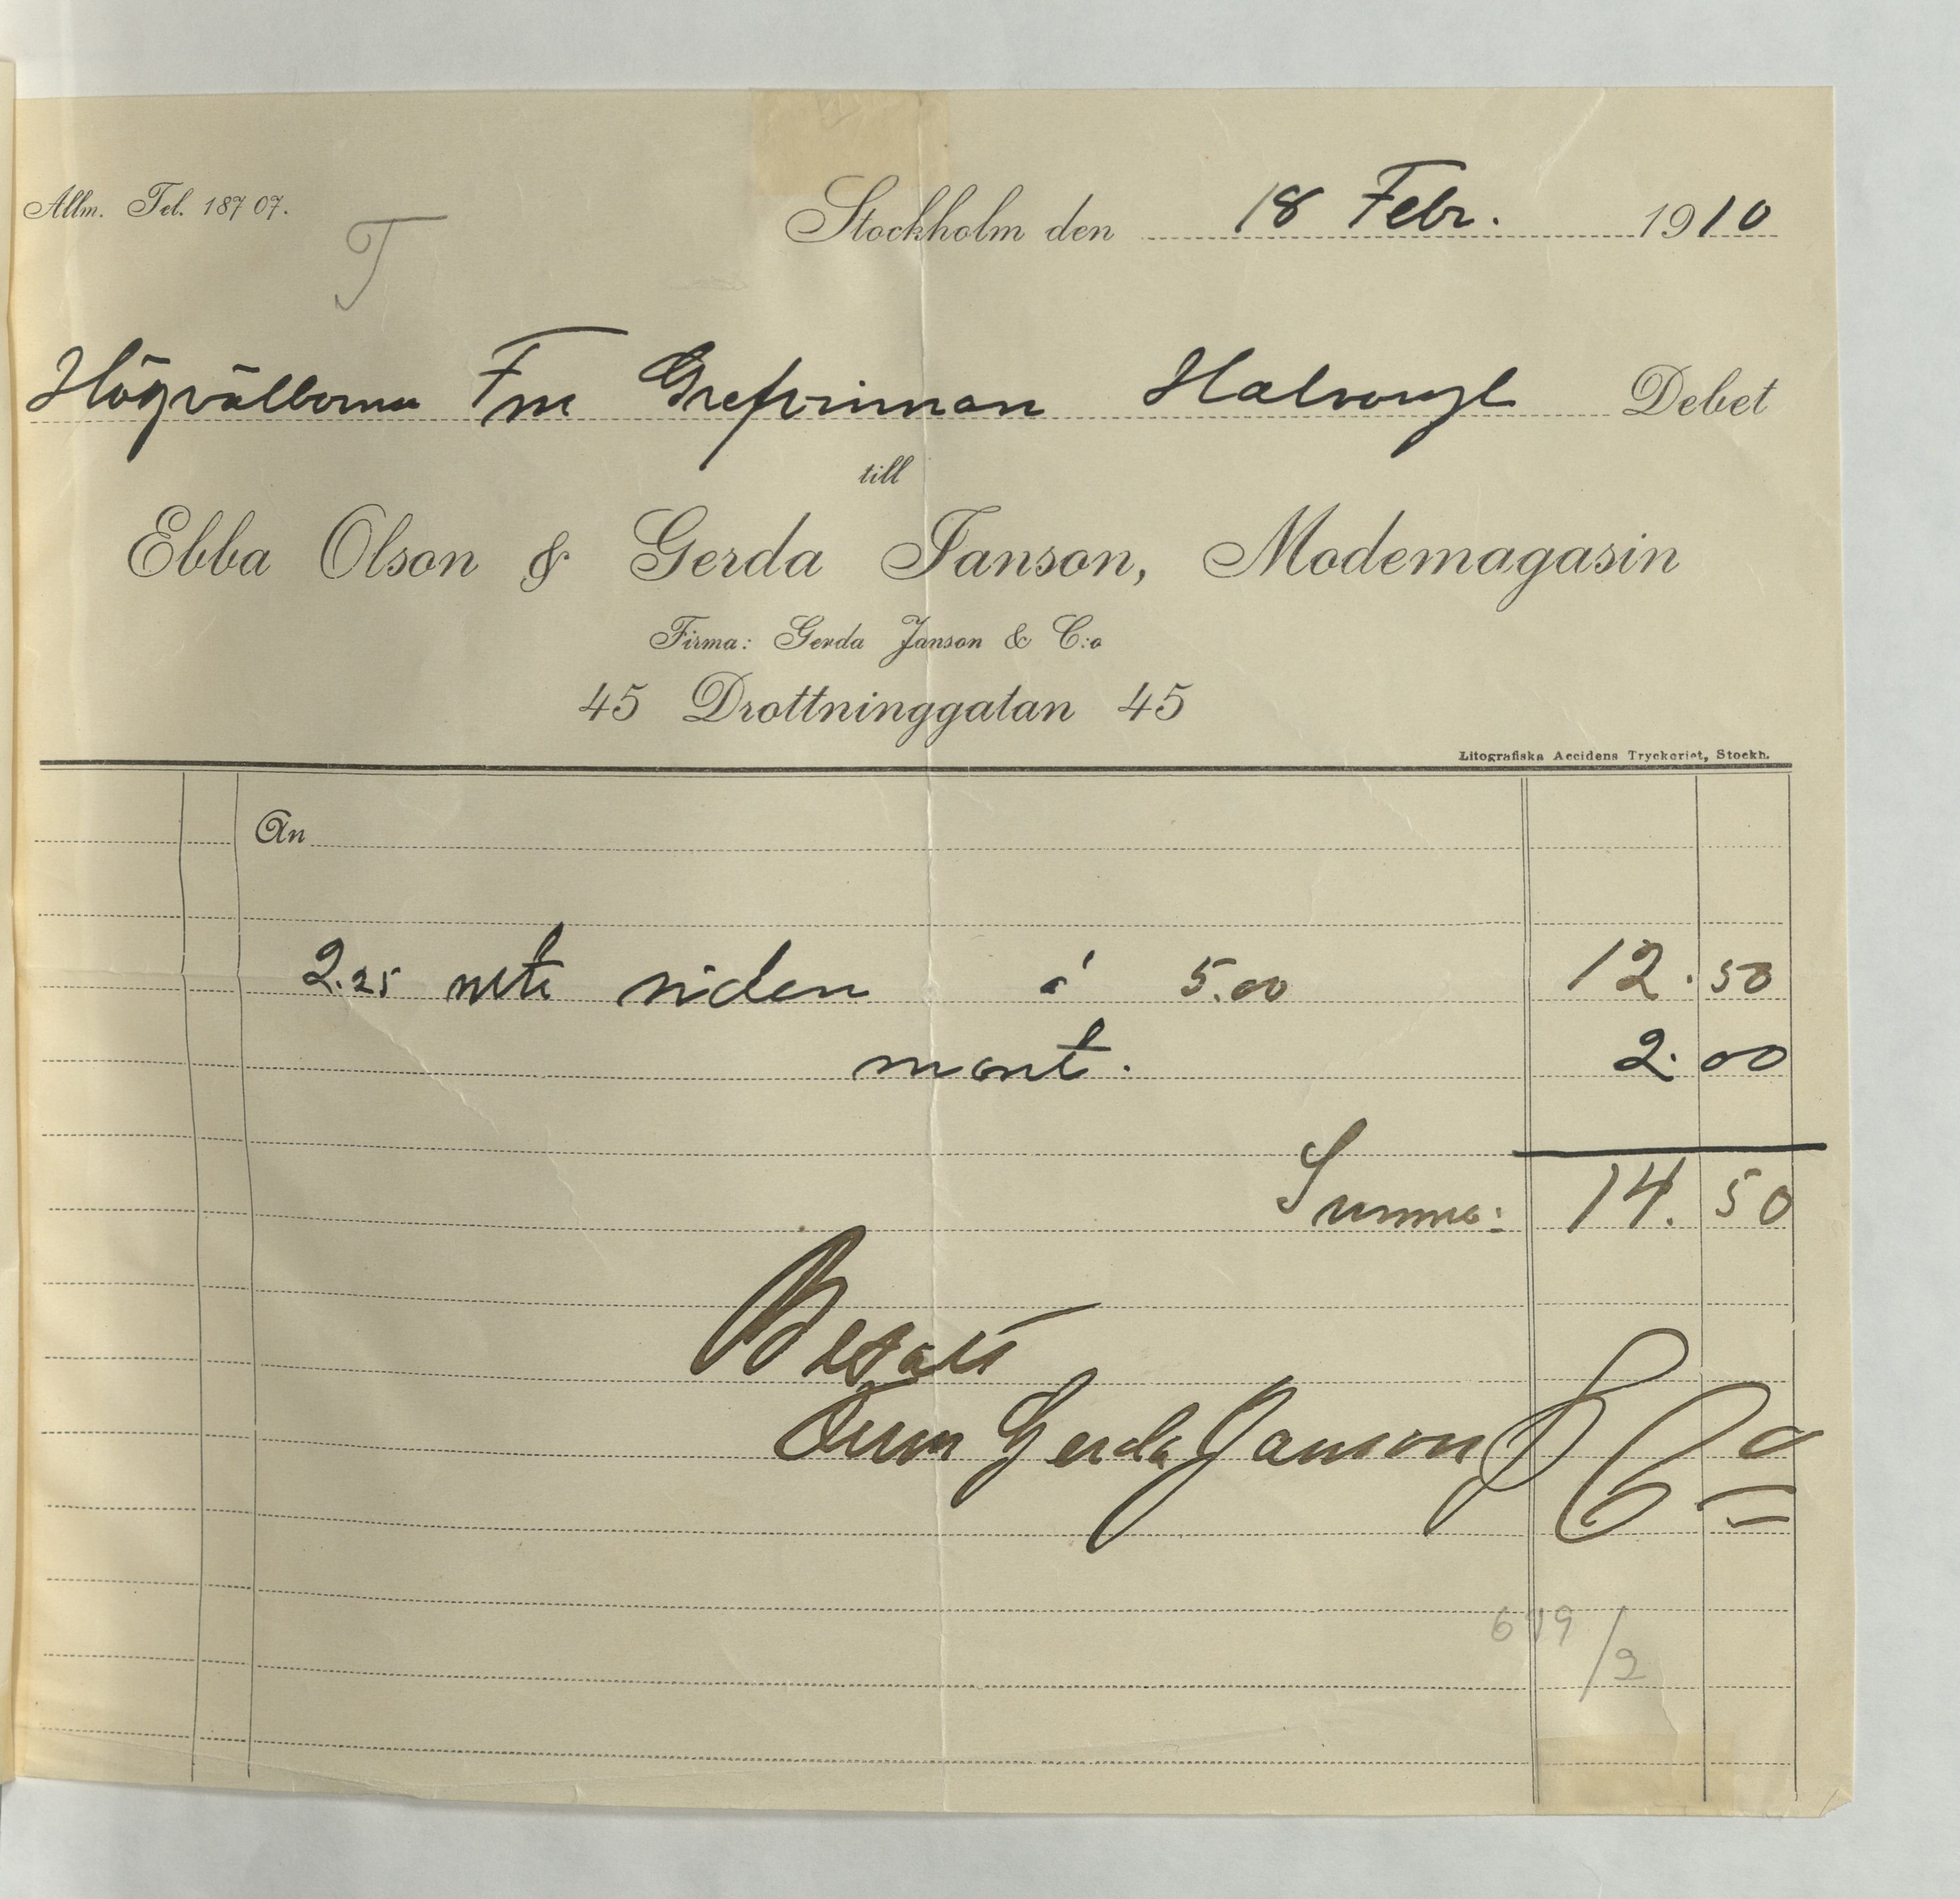 Allm. Tel. 187 07.
T
Stockholm den 18 Febr. 1910
Högvälborna Fru Grefvinnan Hallwyl Debet
till
Ebba Olson & Gerda Janson, Modemagasin
Firma: Gerda Janson & C:o
45 Drottninggatan 45
Litografiska Accidens Tryckeriet, Stockh.
An
2.25 mtr siden à 5.00 12.50
mont. 2.00
Summa: 14.50
Betalt
Gerda Janson & Co
619/2